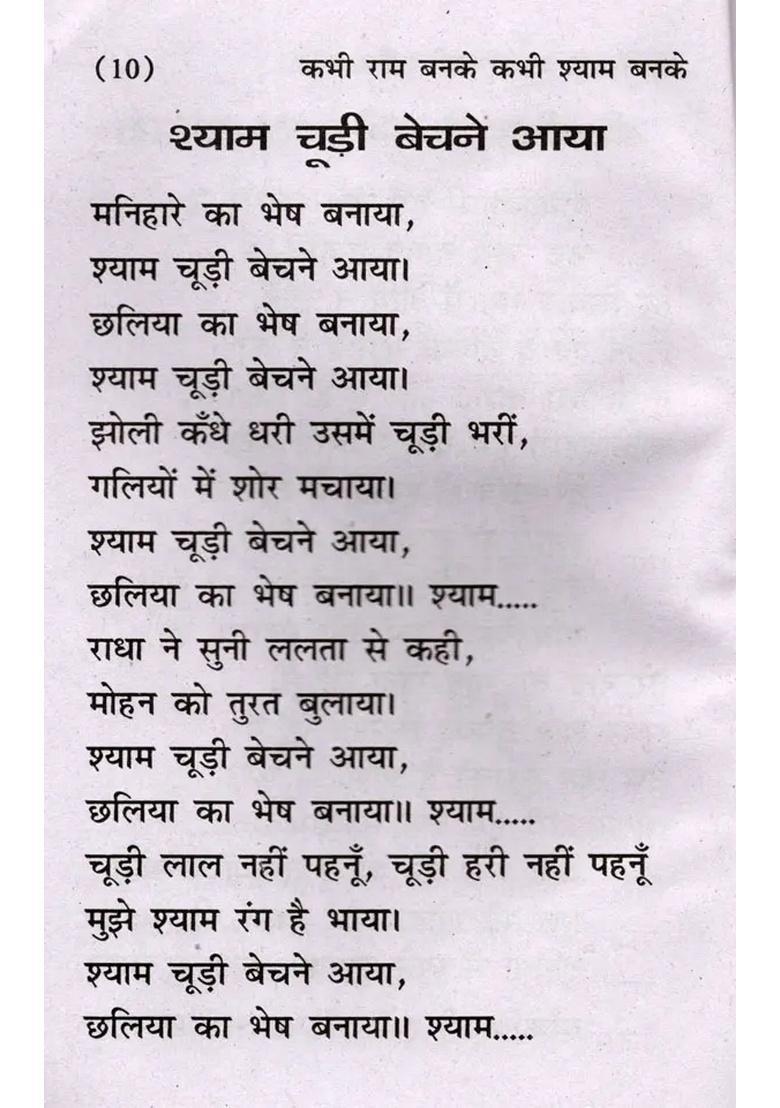 (10) कभी राम बनके कभी श्याम बनके
श्याम चूड़ी बेचने आया
मनिहारे का भेष बनाया,
श्याम चूड़ी बेचने आया।
छलिया का भेष बनाया,
श्याम चूड़ी बेचने आया।
झोली कँधे धरी उसमें चूड़ी भरीं,
गलियों में शोर मचाया।
श्याम चूड़ी बेचने आया,
छलिया का भेष बनाया॥ श्याम.....
राधा ने सुनी ललता से कही,
मोहन को तुरत बुलाया।
श्याम चूड़ी बेचने आया,
छलिया का भेष बनाया॥ श्याम.....
चूड़ी लाल नहीं पहनूँ, चूड़ी हरी नहीं पहनूँ
मुझे श्याम रंग है भाया।
श्याम चूड़ी बेचने आया,
छलिया का भेष बनाया॥ श्याम.....